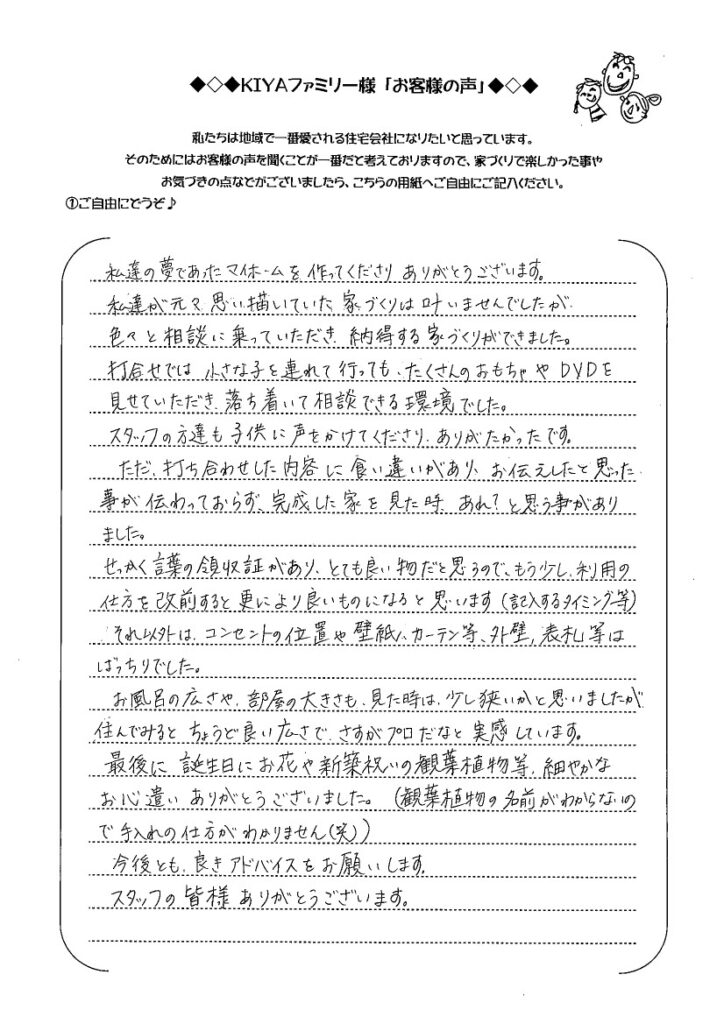 ◆◇◆KIYAファミリー様「お客様の声」◆◇◆
私たちは地域で一番愛される住宅会社になりたいと思っています。
そのためにはお客様の声を聞くことが一番だと考えておりますので、家づくりで楽しかった事や
お気づきの点などがございましたら、こちらの用紙へご自由にご記入ください。
①ご自由にどうぞ♪
私達の夢であったマイホームを作ってくださり ありがとうございます。
私達が元々思い描いていた家づくりは叶いませんでしたが
色々と相談に乗っていただき 納得する家づくりができました。
打合せでは 小さな子を連れて行っても、たくさんのおもちゃや DVDを
見せていただき、落ち着いて相談できる環境でした。
スタッフの方達も子供に声をかけてくださり、ありがたかったです。
ただ、打ち合わせした内容に食い違いがあり、お伝えしたと思った
事が伝わっておらず、完成した家を見た時 あれ？と思う事があり
ました。
せっかく言葉の領収証があり、とても良い物だと思うので、もう少し、利用の
仕方を改前すると更により良いものになると思います(記入するタイミング等)
それ以外は、コンセントの位置や壁紙、カーテン等、外壁、表札等は
ばっちりでした。
お風呂の広さや、部屋の大きさも、見た時は、少し狭いかと思いましたが
住んでみると ちょうど良い広さで、さすがプロだなと実感しています。
最後に 誕生日にお花や新築祝いの観葉植物等、細やかな
お心遣い ありがとうございました。(観葉植物の名前がわからないの
で手入れの仕方がわかりません(笑))
今後とも、良きアドバイスをお願いします。
スタッフの皆様 ありがとうございます。